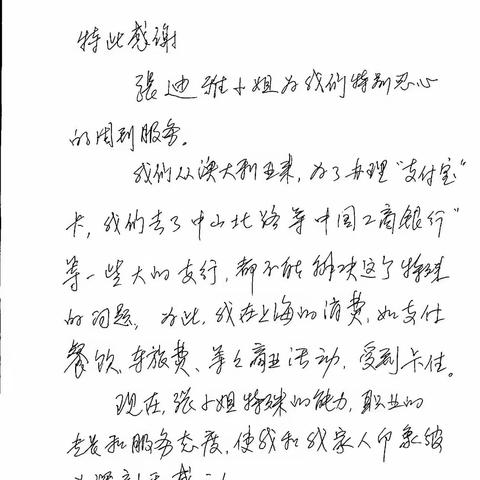 特此感谢
張迪雅小姐为我们特别忍心
的周到服务。
我们从澳大利亚来，为了办理“支付宝”
卡，我们去了中山北路等中国工商银行”
等一些大的支行，都不能解决这个特殊
的问题，为此，我在上海的消费，如支付
餐饮，车旅费、等之商业活动，受到卡住。
现在，张小姐特殊的能力，职业的
专长和服务态度，使我和我家人印象彼